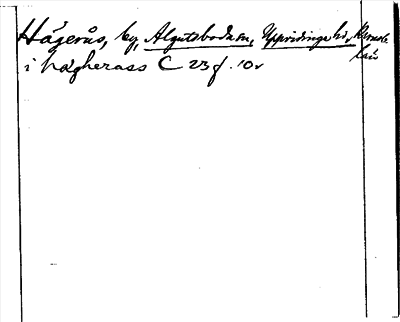 Hägerås, by, Algutsboda sn, Uppvidinge hd, Kronob. län
i hægherass C 23 f. 10v